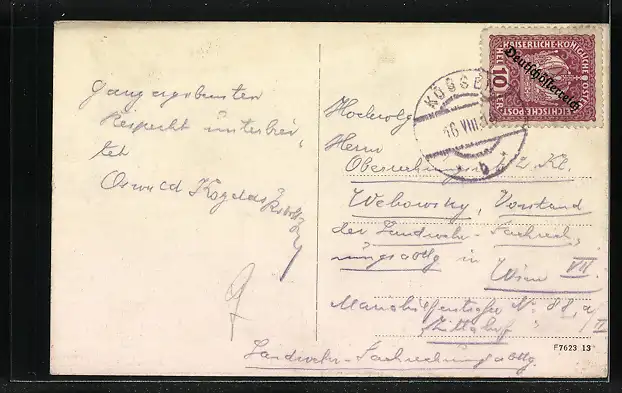 Ganz ergebensten
Respekt unterbrei-
tet
Oswald
KAISERLICHE KÖNIGLICHE
ÖSTERREICHISCHE POST
HELLER 10 HELLER
Deutschösterreich
KÖSSEN
16 VIII
b
Hochwolg
Herrn
Oberrechnungsrat 2. Kl.
Webowsky, Vorstand
der Landwehr-Fachrech,
nungsabtlg in
Wien VII.
Mariahilferstraße No 88, a/
II
Landwehr-Fachrechnungsabtlg.
E7623 13